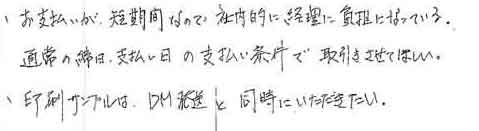 、お支払いが、短期間なので、社内的に経理に負担になっている。
通常の締日、支払い日の支払い条件で取引させてほしい。
、印刷サンプルは、DM発送と同時にいただきたい。